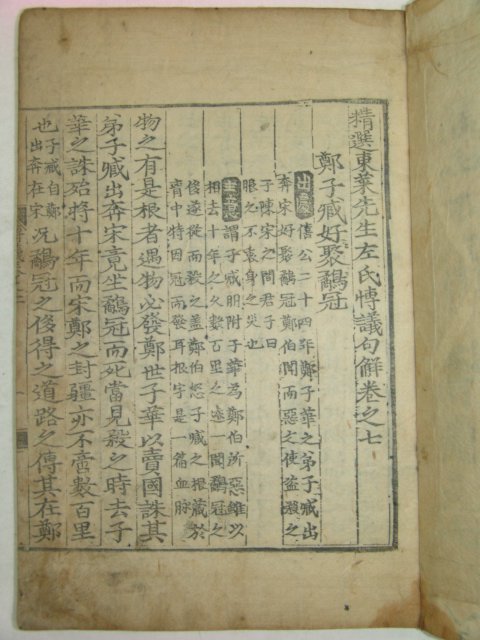 精選東萊先生左氏博議句解卷之七
鄭子臧好聚鷸冠
出處 僖公二十四年鄭子華之弟子臧出
奔宋好聚鷸冠鄭伯聞而惡之使盜殺之
于陳宋之間君子曰
服之不衷身之災也
主意 謂子臧朋附子華為鄭伯所惡雖以
相去十年之久數百里之遠一聞鷸冠之
侈遂從而殺之蓋鄭伯怒子臧之根藏於
胷中特因冠而發耳根字是一篇血脉
物之有是根者遇物必發鄭世子華以賣國誅其
弟子臧出奔宋竟坐鷸冠而死當見殺之時去子
華之誅殆將十年而宋鄭之封疆亦不啻數百里
也子臧自鄭
出奔在宋
况鷸冠之侈得之道路之傳其在鄭